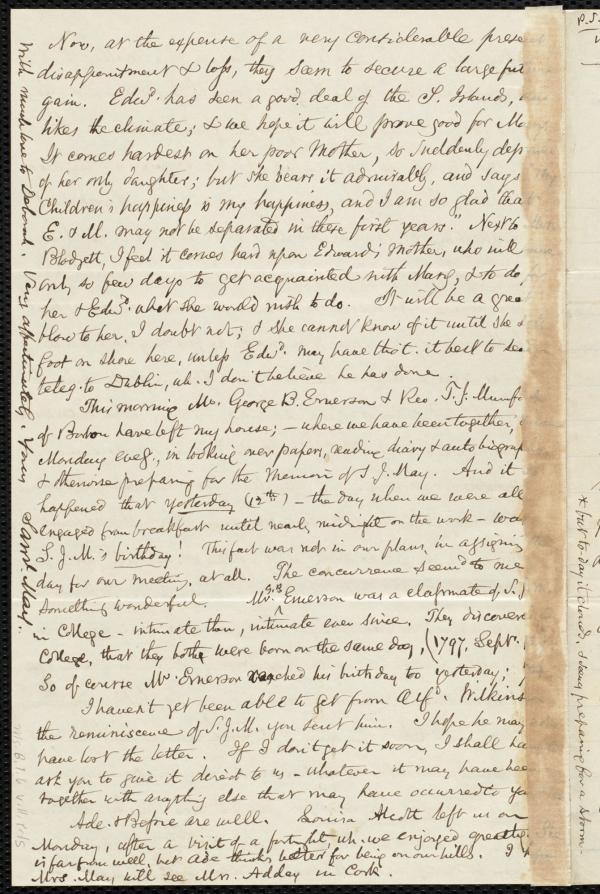 Now, at the expense of a very considerable prese
disappointment & loss, they seem to secure a large fut
gain. Edwd. has seen a good deal of the S. Islands,
likes the climate; & we hope it will prove good for Ma
It comes hardest on her poor Mother, so suddenly dep
of her only daughter; but she bears it admirably, and says
Children's happiness is my happiness, and I am so glad tha
E. & M. may not be separated in these first years." Next to
Blodgett, I feel it comes hard upon Edward's mother, who will
only so few days to get acquainted with Mary, & to do
her & Edwd. what she would wish to do. It will be a grea
blow to her, I doubt not; & she cannot know of it until she s
foot on shore here, unless Edwd. may have tho't it best to se
teleg. to Dublin, wh. I don't believe he has done.
This morning Mr. George B. Emerson & Rev. T. J. Mumfo
of Boston have left my house; – where we have been together,
Monday eveg., in looking over papers, reading diary & autobiograp
& otherwise preparing for the Memoir of S. J. May. And it
happened that yesterday (12th) – the day when we were all
engaged from breakfast until nearly midnight on the work – was
S. J. M.'s birthday! This fact was not in our plans, in assignin
day for our meeting, at all. The concurrence seem'd to me
something wonderful. Mr. G.B. Emerson was a classmate of S. J.
in College – intimate then, intimate ever since. They discovere
College, that they both were born on the same day, (1797, Sept.
So of course Mr. Emerson reached his birthday too yesterday;
I haven't yet been able to get from Alfd. Wilkins
the reminiscence of S. J. M. you sent him. I hope he may
have lost the letter. If I don't get it soon, I shall ha
ask you to give it direct to us – whatever it may have bee
together with anything else that may have occurred to yo
Ade. & Bessie are well. Louisa Alcott left us on
Monday, after a visit of a fortnight, wh. we enjoyed greatly.
is far from well, but Ade thinks better for being on our hills. I
Mrs. May will see Mrs. Addey in Cork.
With much love to Deborah. Very affectionately. Yours Saml. May.
P.S.
* but to-day it clouds, & being preparing for a storm –